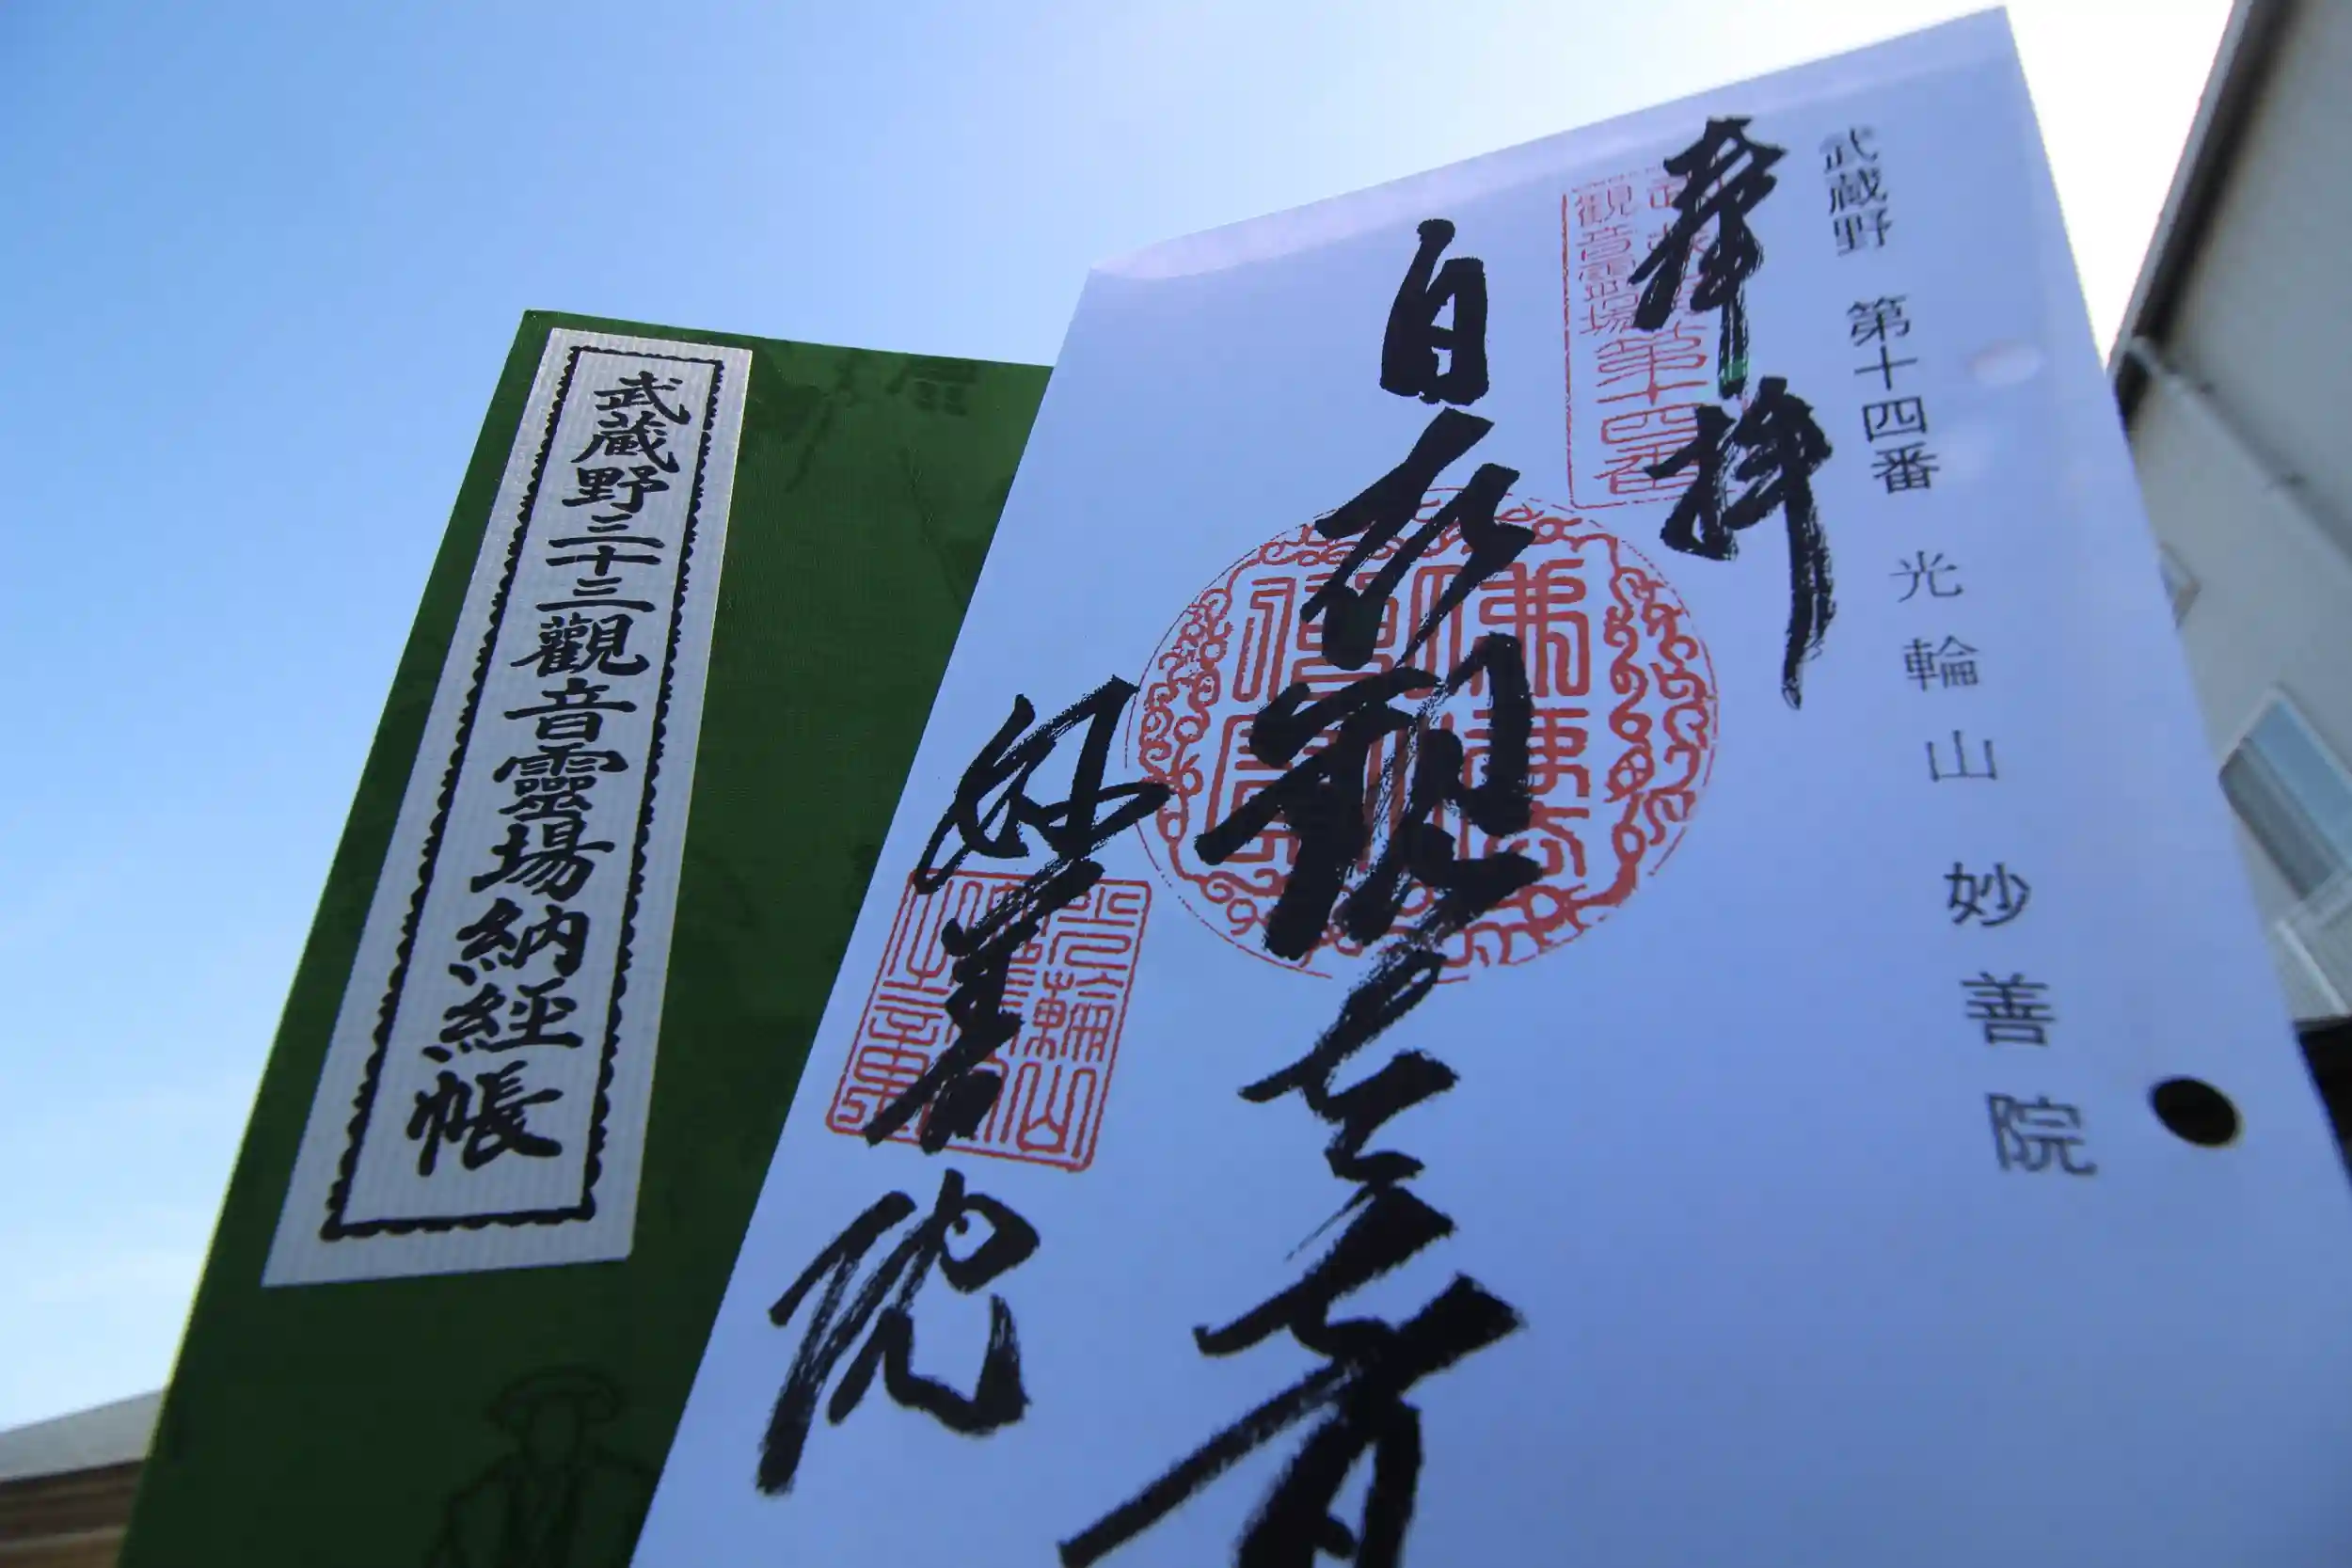 武蔵野 第十四番 光輪山 妙善院
奉拝
武蔵野
觀音霊場
第十四番
白衣観世音
妙善院
光輪山
武蔵野三十三觀音靈場納経帳